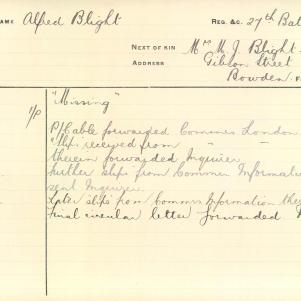 NAME Alfred Blight REG. &C. 27th Bat
NEXT OF KIN Mrs M. J. Blight
ADDRESS Gibson Street
Bowden.
"Missing"
P/Cable forwarded Commrs London
" slips received from " "
therein forwarded Inquirer
further slips from Commrs Informati
sent Inquirer.
Later slips from Commrs Information
Final circular letter forwarded